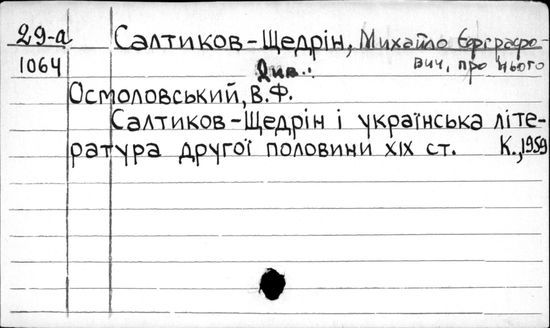 29-а Салтиков-Щедрін, Михайло Євграфо-
1064 вич, про нього
Див.:
Осмоловський, В.Ф.
Салтиков-Щедрін і українська літе-
ратура другої половини XIX ст. К., 1959